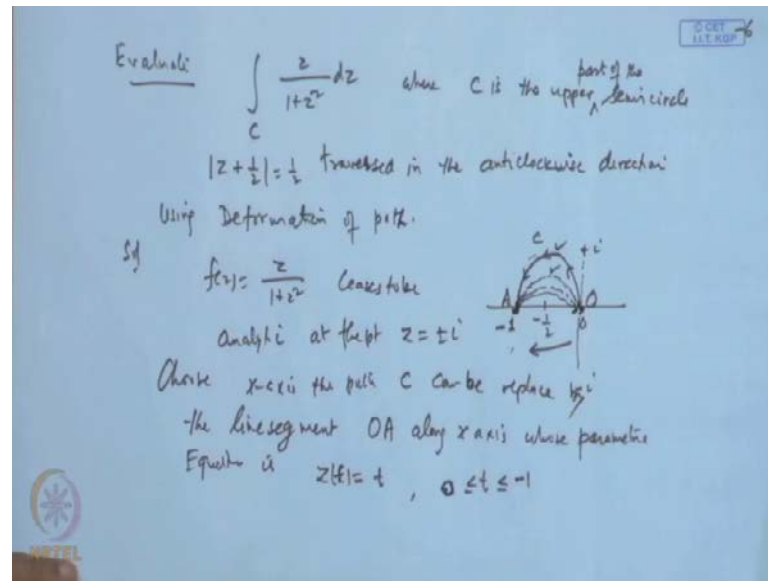 Evaluate ∫ z/(1+z²) dz where C is the upper part of the semi circle
C
|z + 1/2| = 1/2 traversed in the anticlockwise direction
Using Deformation of path.
Sol f(z) = z/(1+z²) Ceases to be
analytic at the pt z = ±i
C
+i
A O
-1 -1/2 0
-i
Choose x-axis the path C can be replace by
the line segment OA along x axis whose parametric
Equation is z(t) = t , 0 ≤ t ≤ -1
© CET
I.I.T. KGP
NPTEL